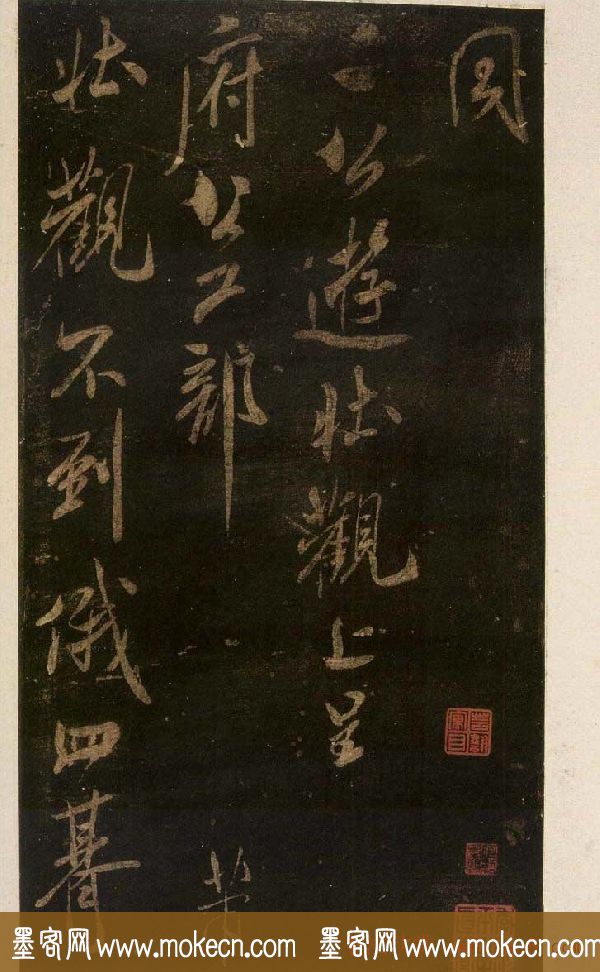 同
二公遊壯觀上呈
府公工部 芾
壯觀不到俄四朞
墨客网www.mokecn.com 墨客网www.mokecn.com